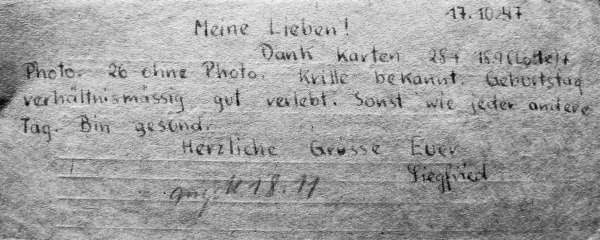 17.10.47
Meine Lieben!
Dank Karten 25+ 18.9 (Lotte)+
Photo. 26 ohne Photo. Krille bekannt. Geburtstag
verhältnismässig gut verlebt. Sonst wie jeder andere
Tag. Bin gesund.
Herzliche Grüsse Euer
Siegfried
18.11